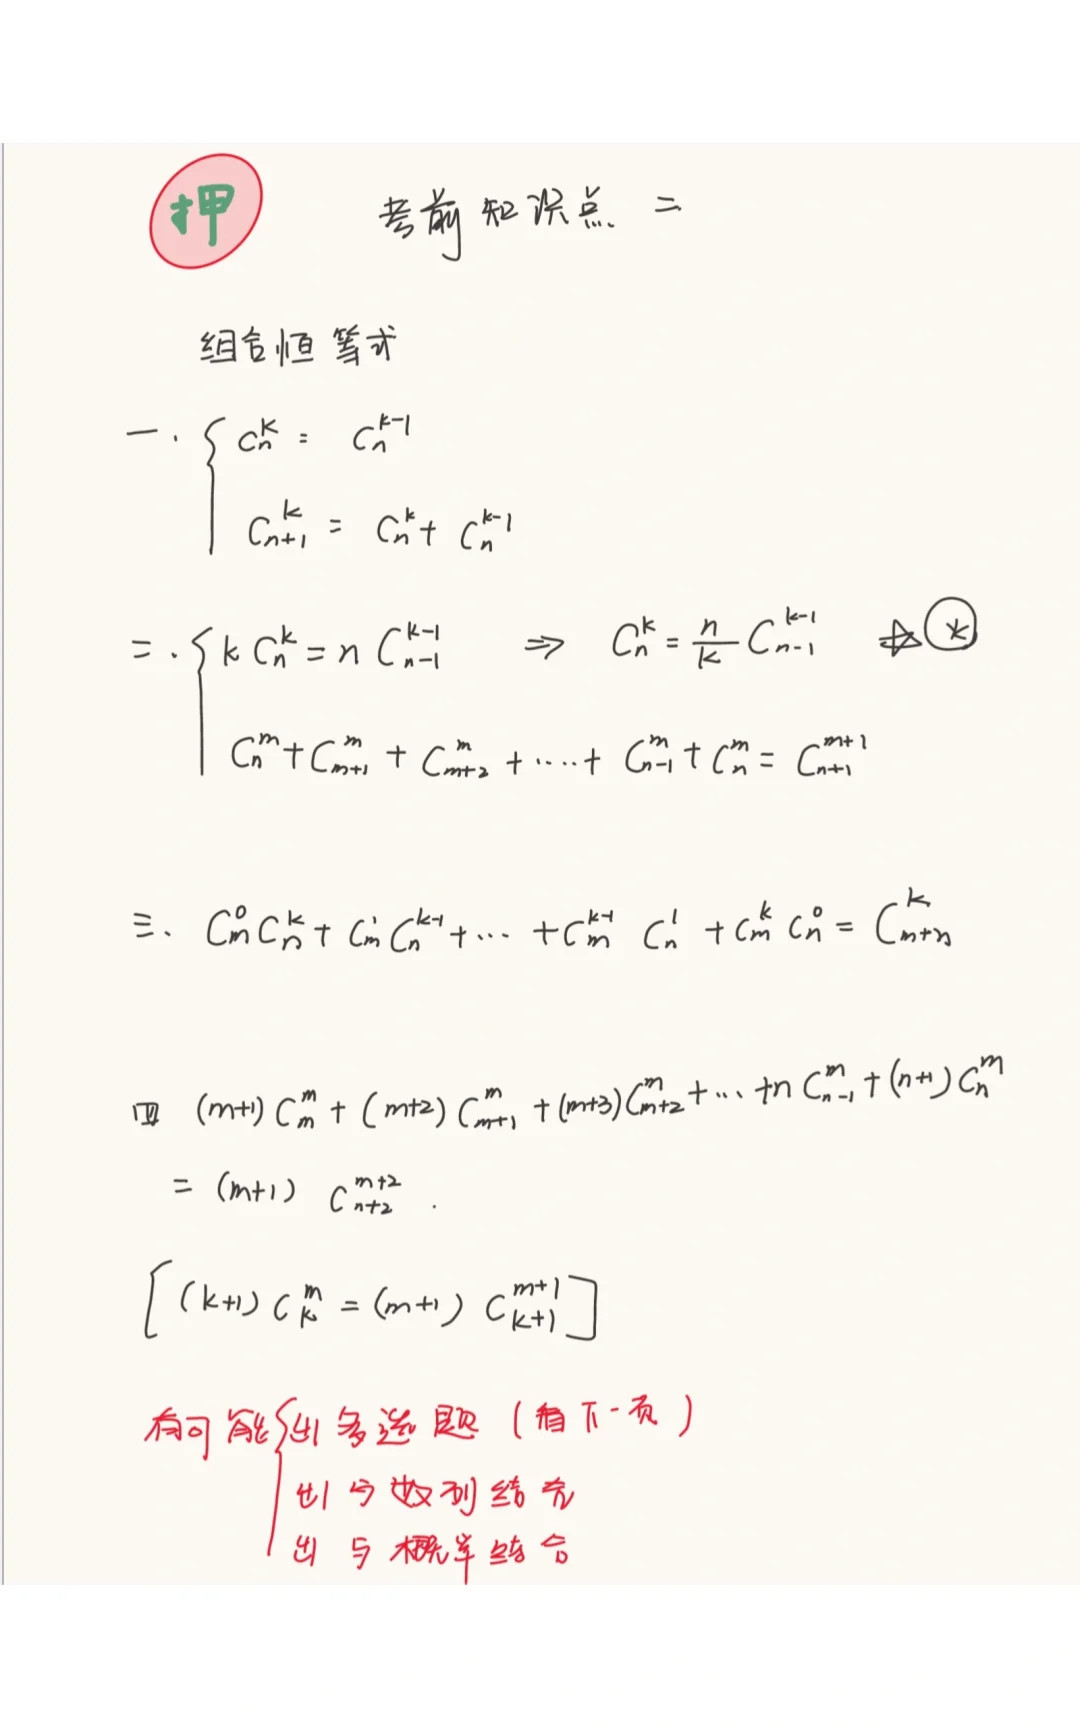 押
考前知识点 二
组合恒等式
一. { C_n^k = C_n^{k-1}
C_{n+1}^k = C_n^k + C_n^{k-1}
二. { k C_n^k = n C_{n-1}^{k-1} ⇒ C_n^k = \frac{n}{k} C_{n-1}^{k-1} ☆ ⊛
C_n^m + C_{m+1}^m + C_{m+2}^m + ····· + C_{n-1}^m + C_n^m = C_{n+1}^{m+1}
三. C_m^0 C_n^k + C_m^1 C_n^{k-1} + ··· + C_m^{k-1} C_n^1 + C_m^k C_n^0 = C_{m+n}^k
四 (m+1) C_m^m + (m+2) C_{m+1}^m + (m+3) C_{m+2}^m + ··· + n C_{n-1}^m + (n+1) C_n^m
= (m+1) C_{n+2}^{m+2} .
[ (k+1) C_k^m = (m+1) C_{k+1}^{m+1} ]
有可能 { 出多选题 (看下一页)
出与数列结合
出与概率结合